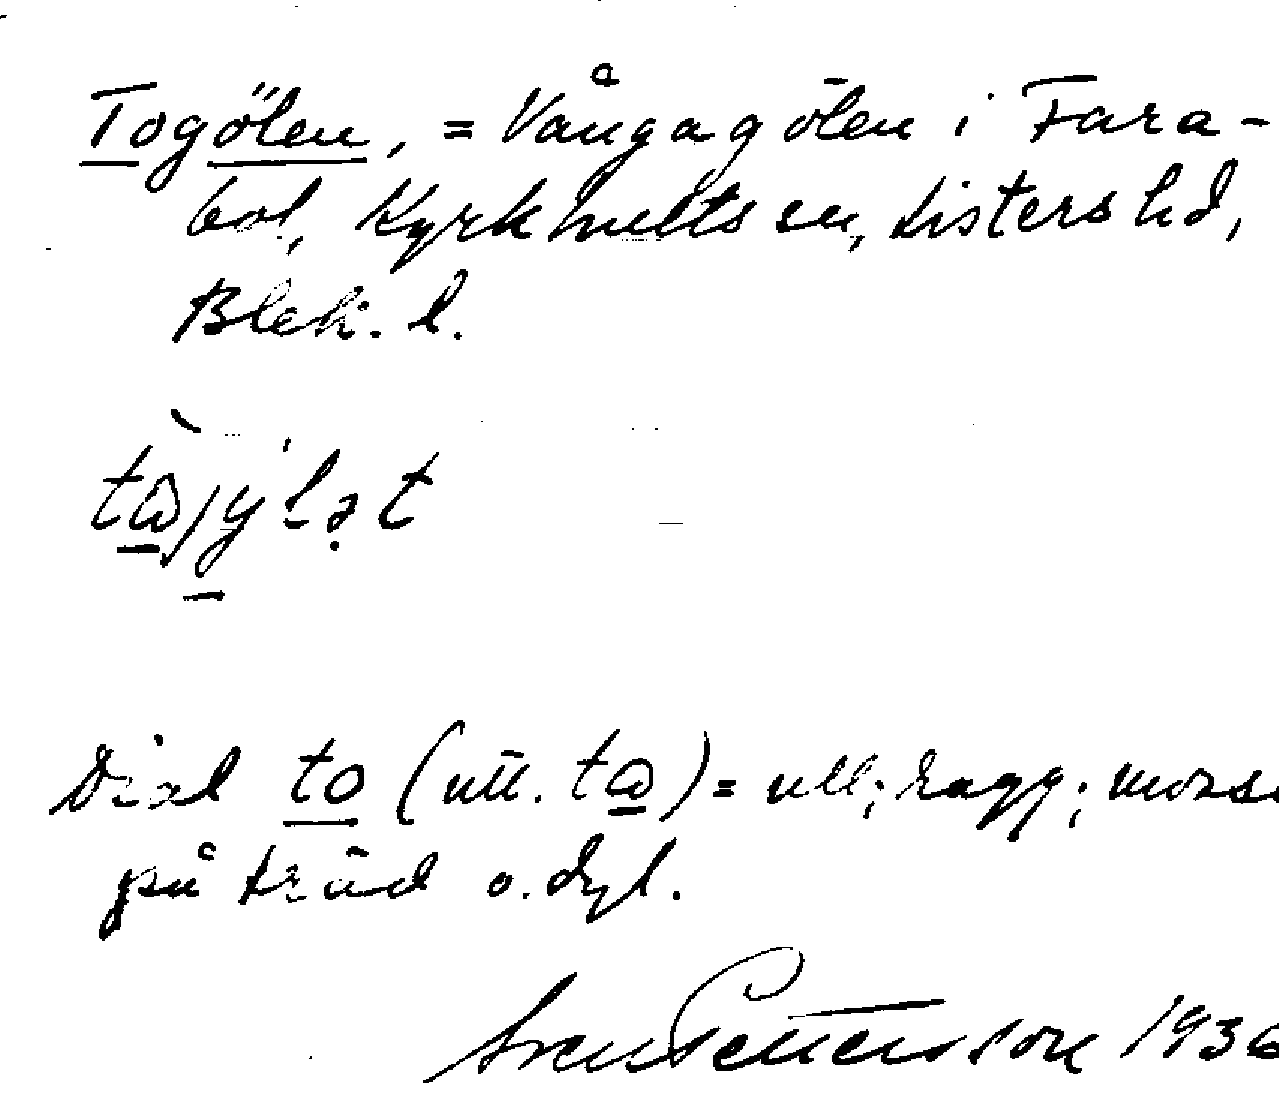 Togölen, = Vångagölen i Fara-
bol, Kyrkhults sn, Listers hd,
Blek. l.
Dial to (utt. tɷ) = ull; ragg; mossa
på träd o. dyl.
Sven Pettersson 1936